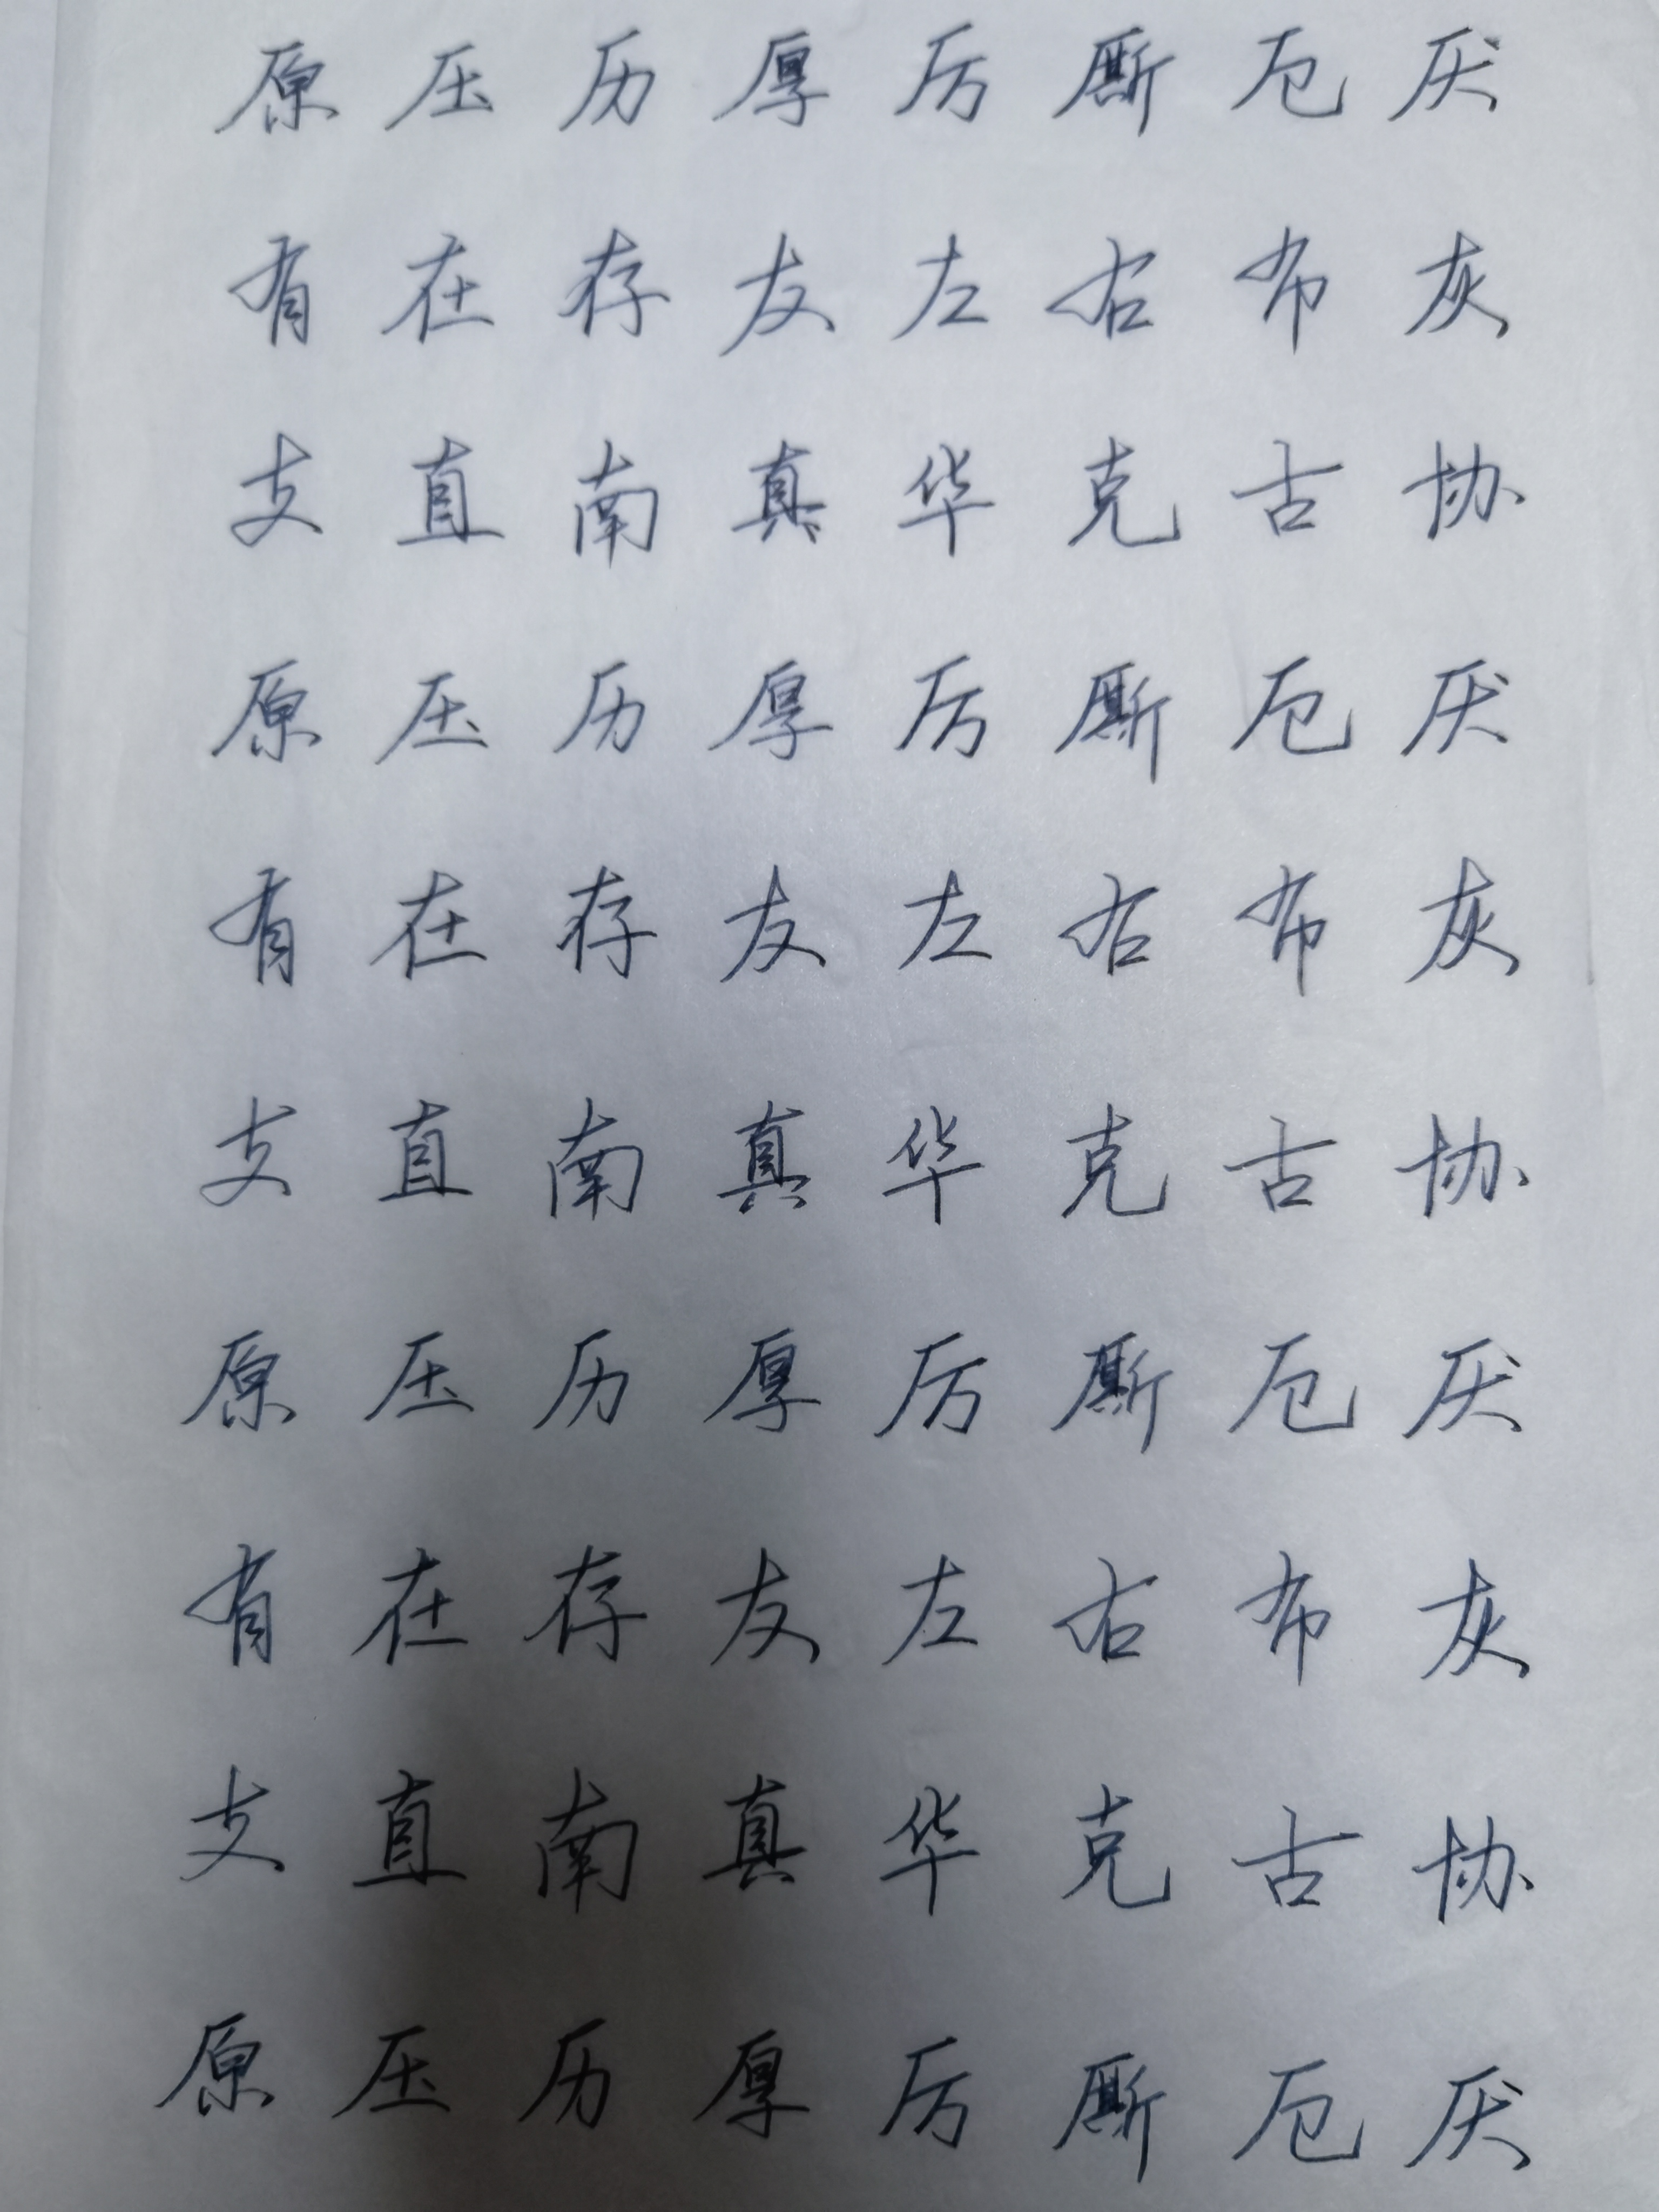 原压历厚厉厮厄厌
有在存友左右布灰
支直南真华克古协
原压历厚厉厮厄厌
有在存友左右布灰
支直南真华克古协
原压历厚厉厮厄厌
有在存友左右布灰
支直南真华克古协
原压历厚厉厮厄厌